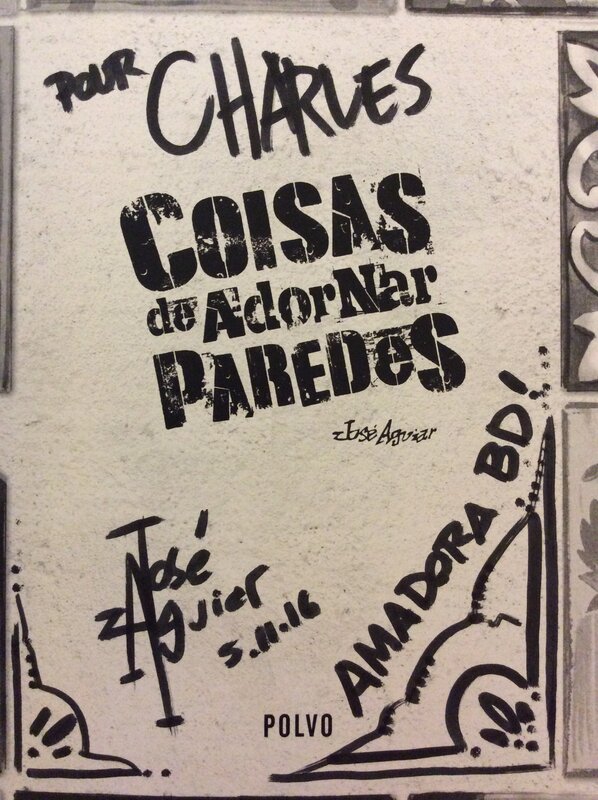 POUR CHARLES
COISAS
de AdorNar
PAREDeS
José Aguiar
AMADORA BD!
José
Aguiar
5.11.16
POLVO